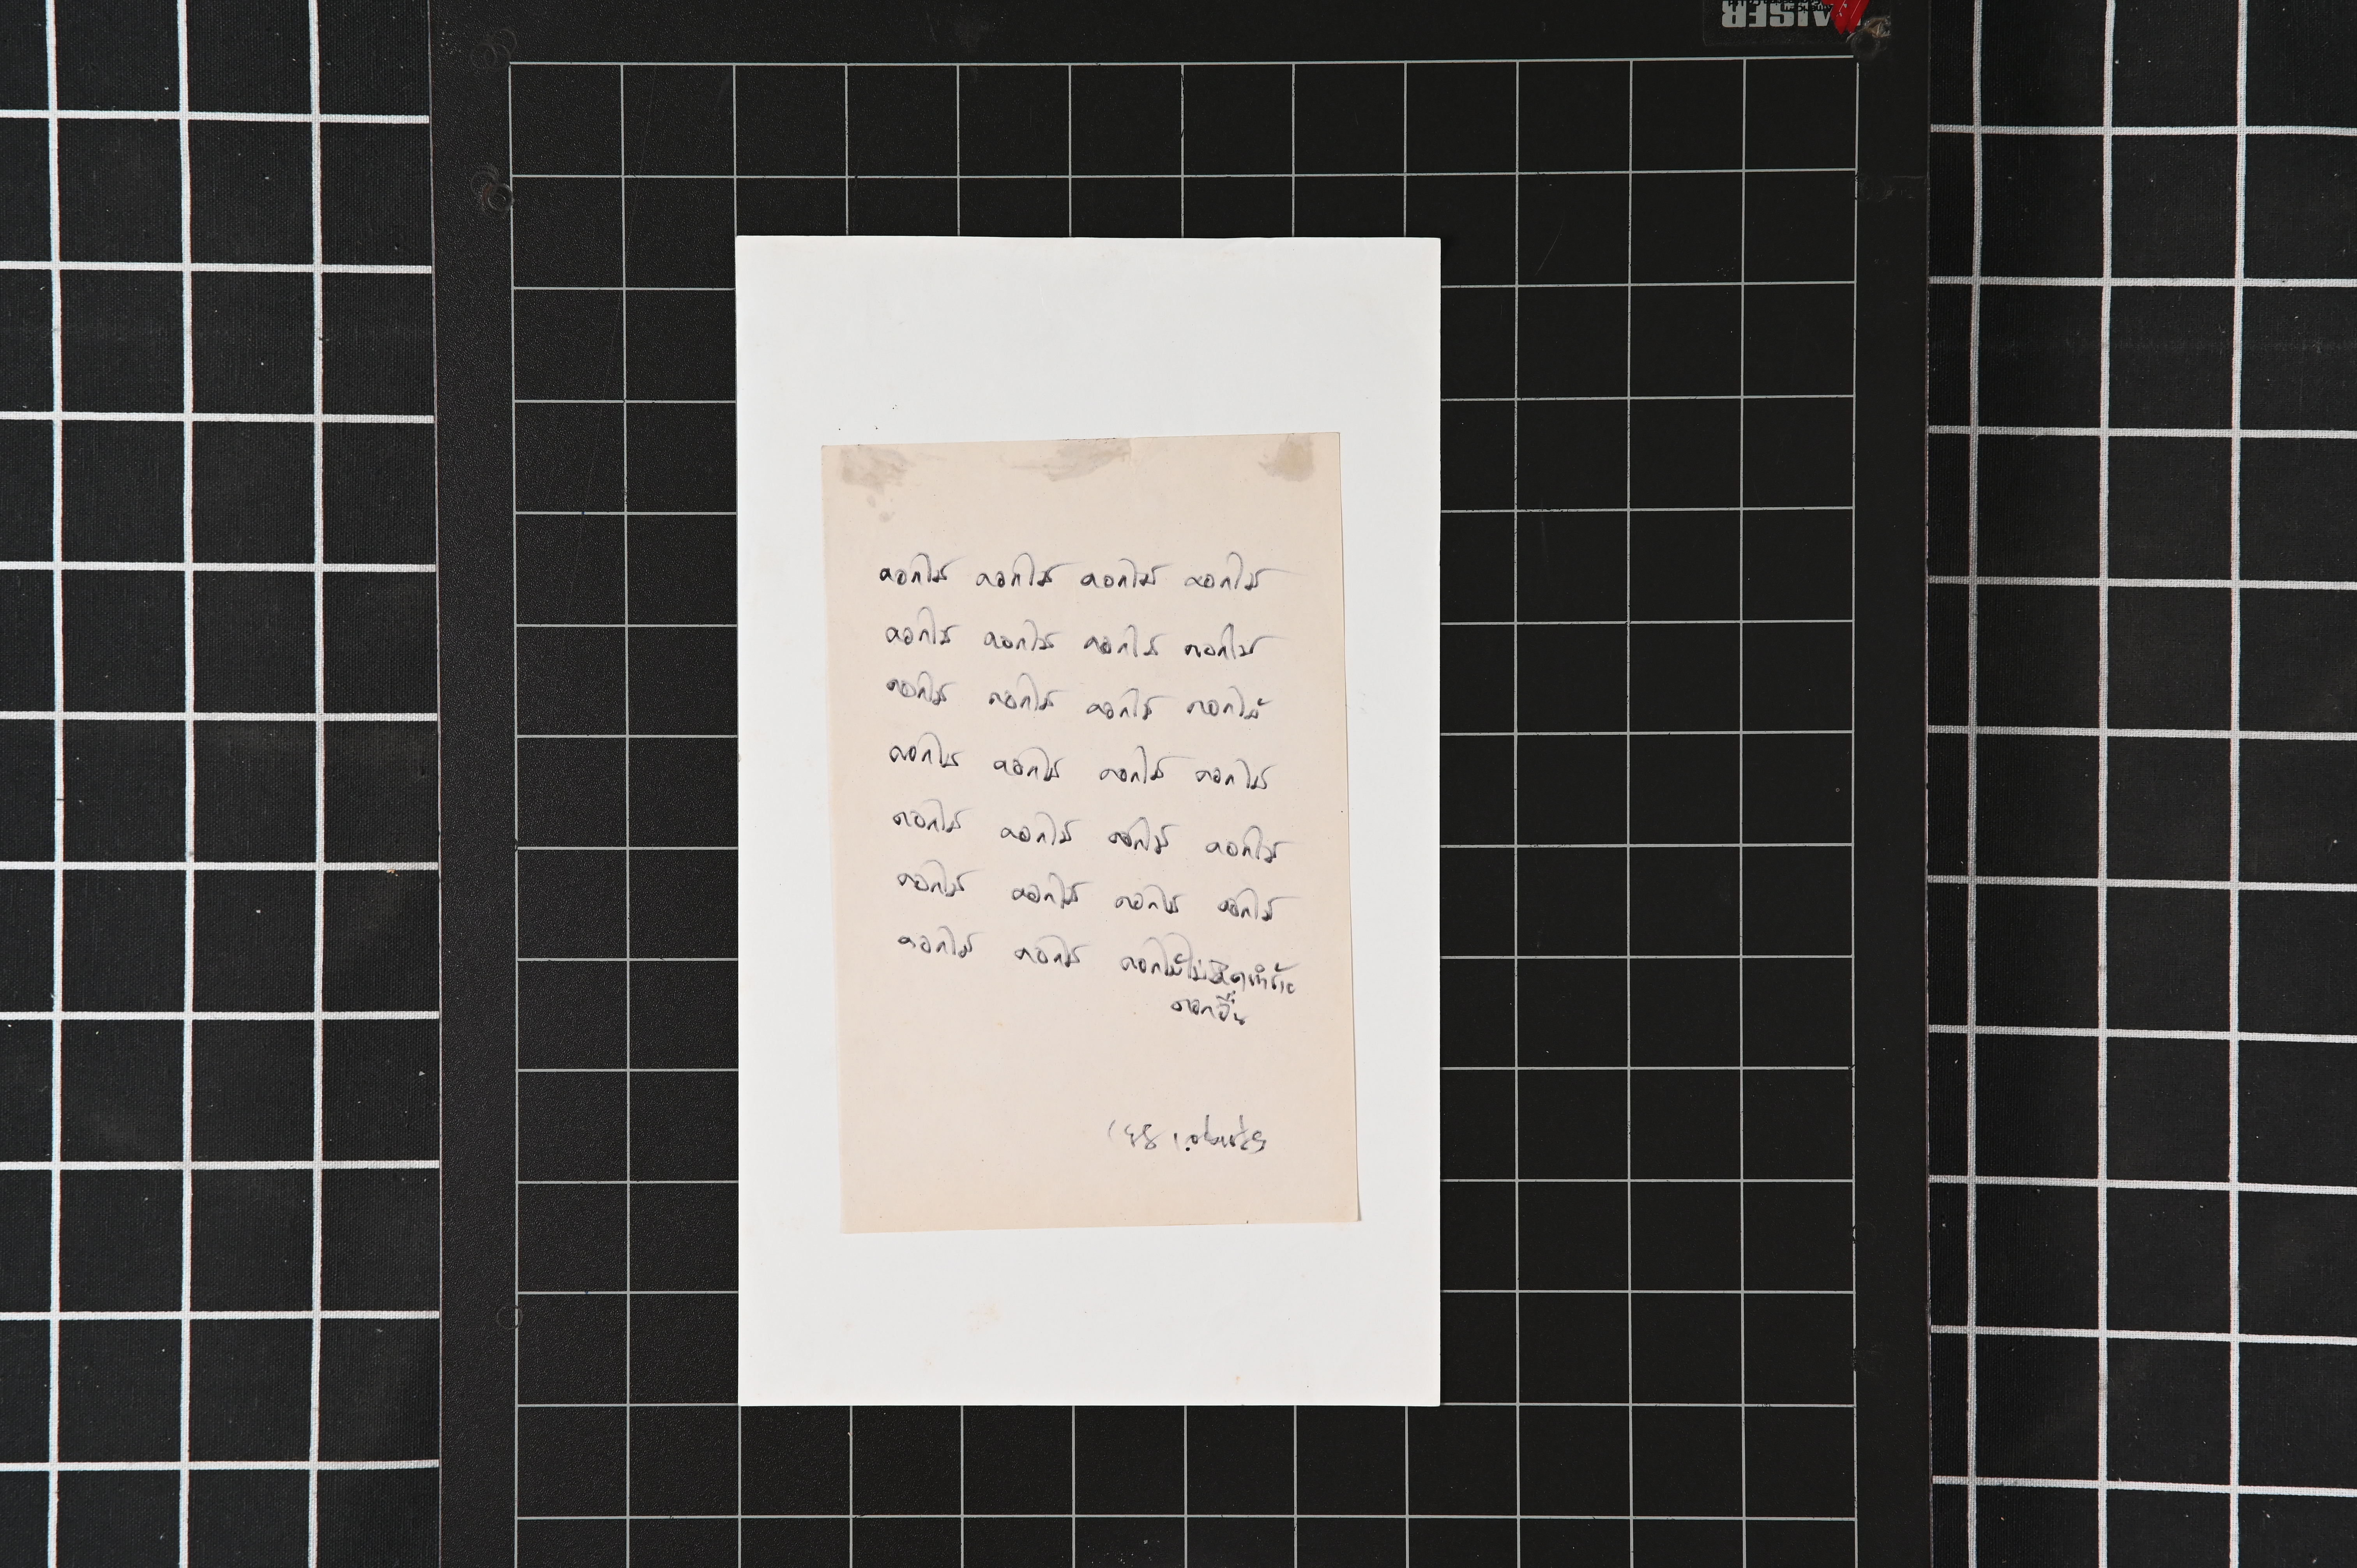 ดอกไม้ ดอกไม้ ดอกไม้ ดอกไม้
ดอกไม้ ดอกไม้ ดอกไม้ ดอกไม้
ดอกไม้ ดอกไม้ ดอกไม้ ดอกไม้
ดอกไม้ ดอกไม้ ดอกไม้ ดอกไม้
ดอกไม้ ดอกไม้ ดอกไม้ ดอกไม้
ดอกไม้ ดอกไม้ ดอกไม้ ดอกไม้
ดอกไม้ ดอกไม้ ดอกไม้ไม่คิดทำร้าย
ดอกอื่น